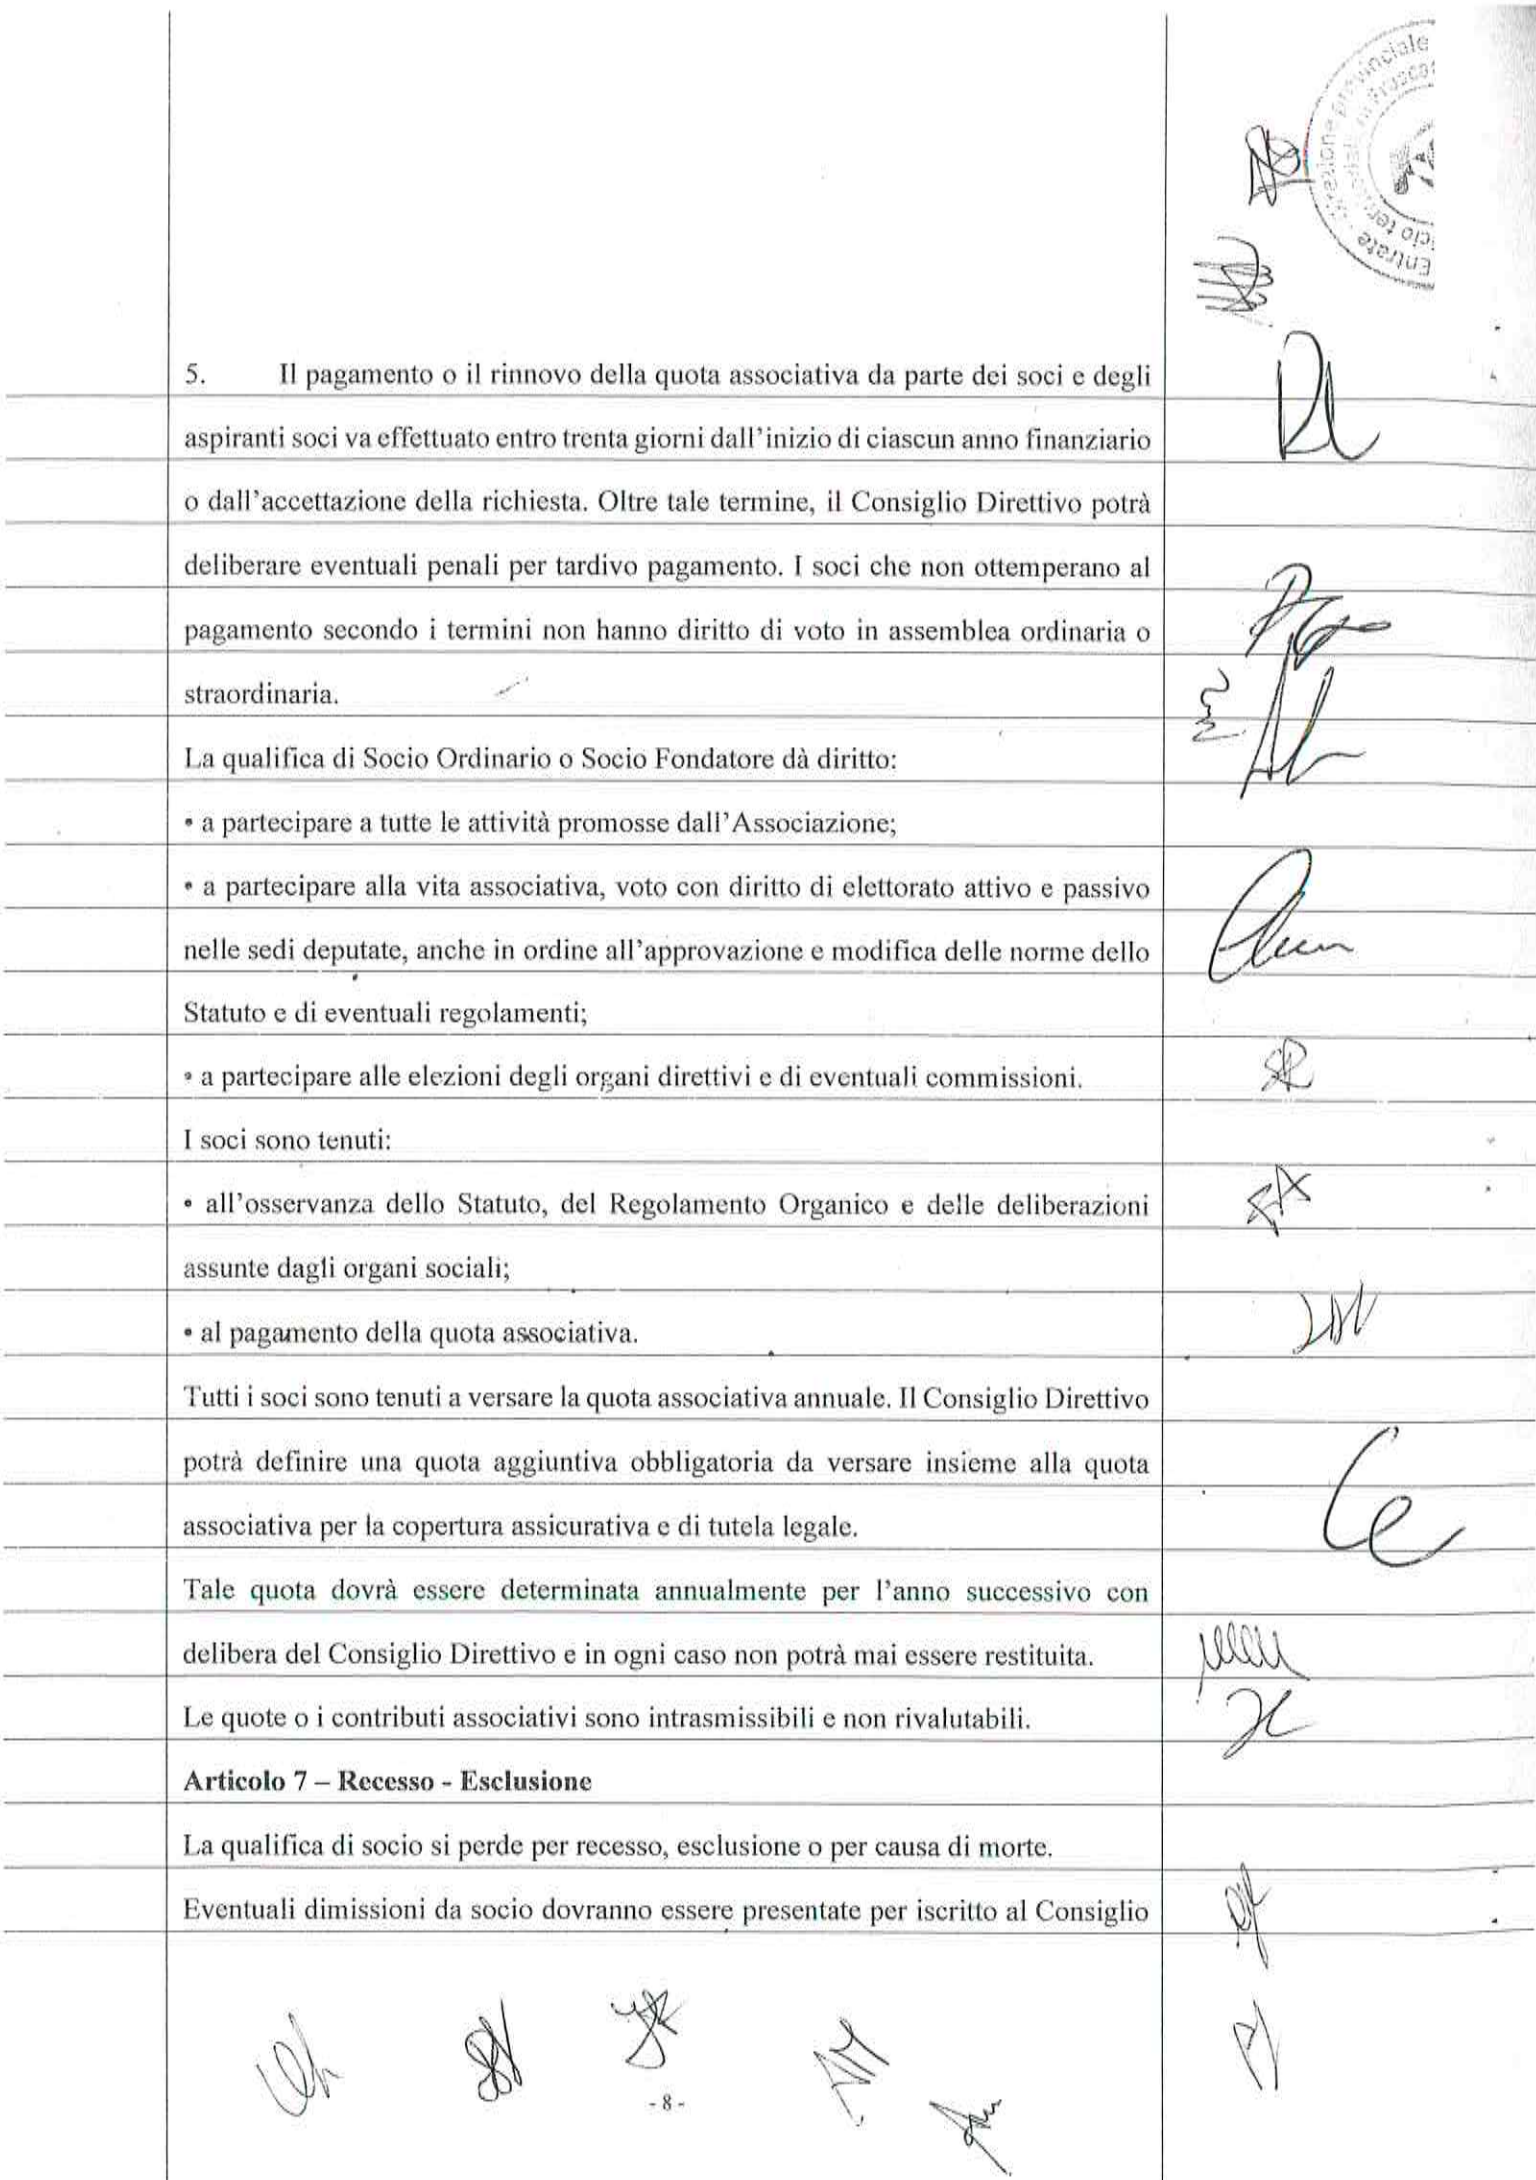 5. Il pagamento o il rinnovo della quota associativa da parte dei soci e degli
aspiranti soci va effettuato entro trenta giorni dall'inizio di ciascun anno finanziario
o dall'accettazione della richiesta. Oltre tale termine, il Consiglio Direttivo potrà
deliberare eventuali penali per tardivo pagamento. I soci che non ottemperano al
pagamento secondo i termini non hanno diritto di voto in assemblea ordinaria o
straordinaria.
La qualifica di Socio Ordinario o Socio Fondatore dà diritto:
• a partecipare a tutte le attività promosse dall'Associazione;
• a partecipare alla vita associativa, voto con diritto di elettorato attivo e passivo
nelle sedi deputate, anche in ordine all'approvazione e modifica delle norme dello
Statuto e di eventuali regolamenti;
• a partecipare alle elezioni degli organi direttivi e di eventuali commissioni.
I soci sono tenuti:
• all'osservanza dello Statuto, del Regolamento Organico e delle deliberazioni
assunte dagli organi sociali;
• al pagamento della quota associativa.
Tutti i soci sono tenuti a versare la quota associativa annuale. Il Consiglio Direttivo
potrà definire una quota aggiuntiva obbligatoria da versare insieme alla quota
associativa per la copertura assicurativa e di tutela legale.
Tale quota dovrà essere determinata annualmente per l'anno successivo con
delibera del Consiglio Direttivo e in ogni caso non potrà mai essere restituita.
Le quote o i contributi associativi sono intrasmissibili e non rivalutabili.
Articolo 7 – Recesso - Esclusione
La qualifica di socio si perde per recesso, esclusione o per causa di morte.
Eventuali dimissioni da socio dovranno essere presentate per iscritto al Consiglio
- 8 -
Entrate